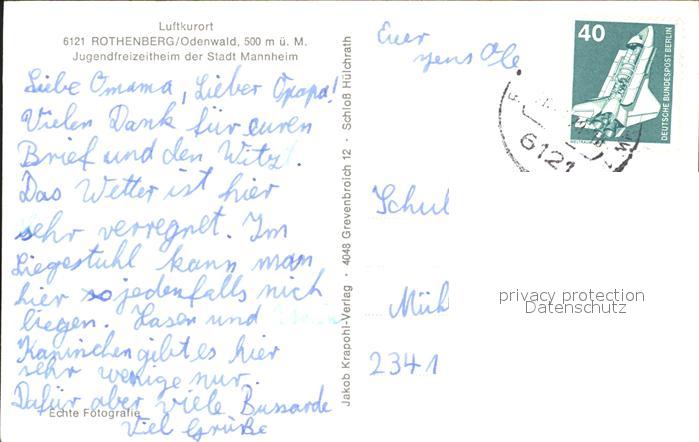 Luftkurort
6121 ROTHENBERG/Odenwald, 500 m ü. M.
Jugendfreizeitheim der Stadt Mannheim
Liebe Omama, Lieber Opapa!
Vielen Dank für euren
Brief und den Witz.
Das Wetter ist hier
sehr verregnet. Im
Liegestuhl kann man
hier so jedenfalls nich
liegen. Hasen und
Kaninchen gibt es hier
sehr wenige nur.
Dafür aber viele Bussarde
Viel Grüße
Echte Fotografie
Jakob Krapohl-Verlag · 4048 Grevenbroich 12 · Schloß Hülchrath
Euer
Jens Ole.
40
DEUTSCHE BUNDESPOST BERLIN
6121
Schul
Müh
2341
privacy protection
Datenschutz